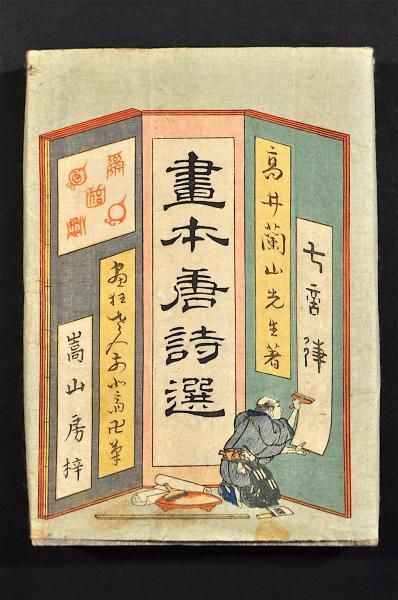 七言律
高井蘭山先生著
畫本唐詩選
画狂老人前北斎卍筆
嵩山房梓